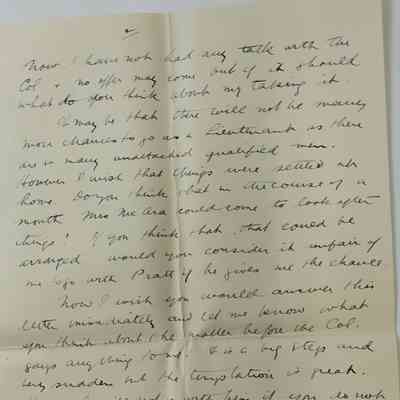 2/
Now I have not had any talk with the
Col & no offer may come but if it should
what do you think about my taking it.
It may be that there will not be many
more chances to go as a Lieutenant as there
are so many unattached qualified men.
However I wish that things were settled at
home. Do you think that in the course of a
month Mrs McAra could come to look after
things? If you think that that could be
arranged would you consider it unfair of
me to go with Pratt if he gives me the chance
Now I wish you would answer this
letter immediately and let me know what
you think about the matter before the Col.
says anything to me. It is a big step and
very sudden but the temptation is great.
if you do not